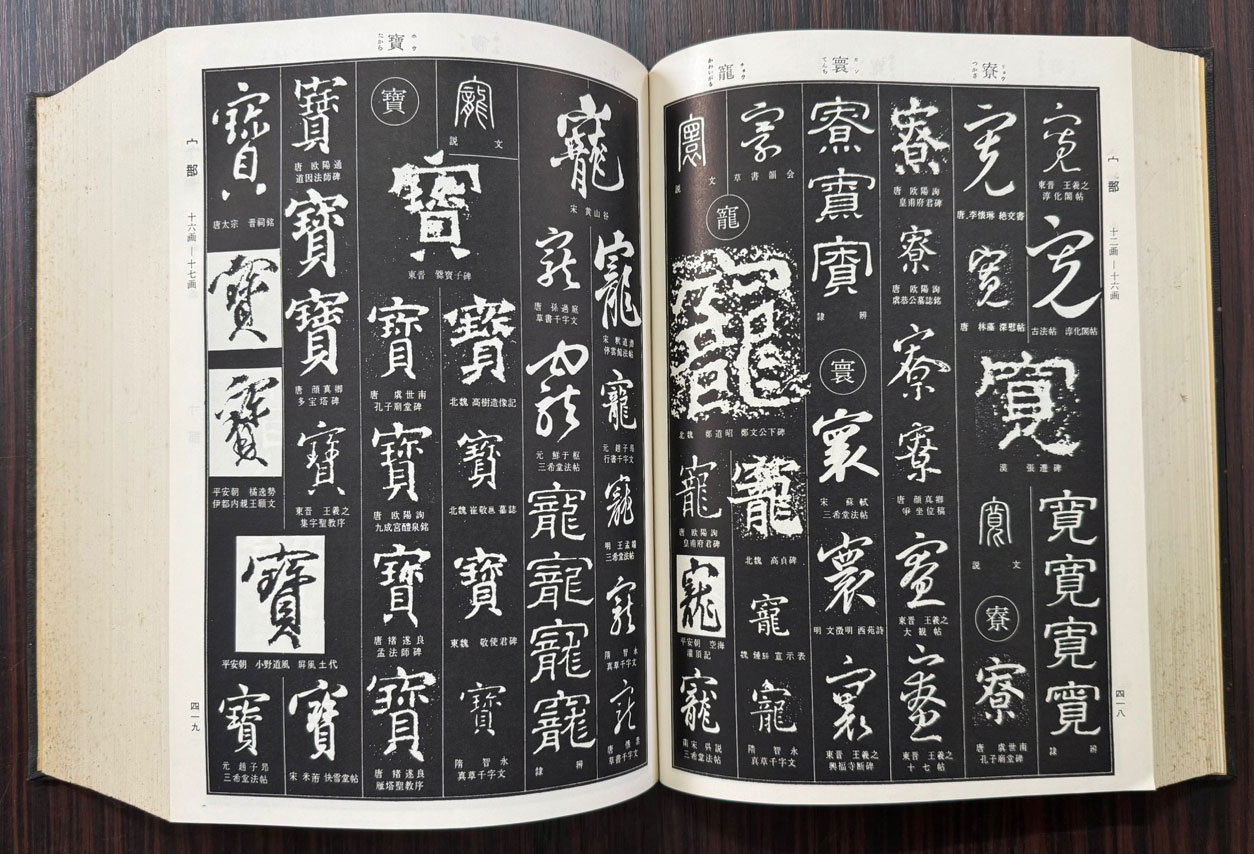 宀部 十二画—十六画
四一八
寮
リョウ
つかさ
寰
カン
てんち
寵
チョウ
かわいがる
寛
東晋 王羲之
淳化閣帖
寛
古法帖 淳化閣帖
寬
寬
寬
寬
隷辨
寛
唐 李懐琳 絶交書
寛
唐 林藻 深慰帖
寬
漢 張遷碑
寬
説文
寮
寮
唐 虞世南
孔子廟堂碑
寮
唐 欧陽詢
皇甫府君碑
寮
唐 欧陽詢
虞恭公墓誌銘
寮
寮
唐 顔真卿
争坐位稿
東晋 王羲之
大観帖
東晋 王羲之
十七帖
寮
隷辨
寰
寰
宋 蘇軾
三希堂法帖
寰
明 文徴明 西苑詩
寰
東晋 王羲之
興福寺断碑
草書韻会
寰
説文
寵
寵
北魏 鄭道昭 鄭文公下碑
寵
北魏 高貞碑
寵
魏 鍾繇 宣示表
寵
隋 智永
真草千字文
寵
唐 欧陽詢
皇甫府君碑
寵
平安朝 空海
灌頂記
寵
南宋 呉説
三希堂法帖
寶
ホウ
たから
宀部 十六画—十七画
四一九
寵
宋 黄山谷
寵
停雲館法帖
寵
元 趙子昂
行書千字文
寵
三希堂法帖
寵
隋 智永
真草千字文
寵
草書千字文
寵
唐 孫過庭
草書千字文
寵
元 鮮于枢
三希堂法帖
寵
寵
寵
寵
隷辨
寵
説文
寶
寶
東晋 爨宝子碑
寶
北魏 高樹造像記
寶
北魏 崔敬邕墓誌
寶
東魏 敬使君碑
寶
隋 智永
真草千字文
寶
唐 虞世南
孔子廟堂碑
寶
唐 欧陽詢
九成宮醴泉銘
寶
唐 褚遂良
孟法師碑
寶
唐 褚遂良
雁塔聖教序
寶
唐 欧陽通
道因法師碑
寶
寶
唐 顔真卿
多宝塔碑
寶
東晋 王羲之
集字聖教序
寶
宋 米芾 快雪堂帖
寶
唐太宗 晋祠銘
寶
寶
平安朝 橘逸勢
伊都内親王願文
寶
平安朝 小野道風 屏風土代
寶
元 趙子昂
三希堂法帖